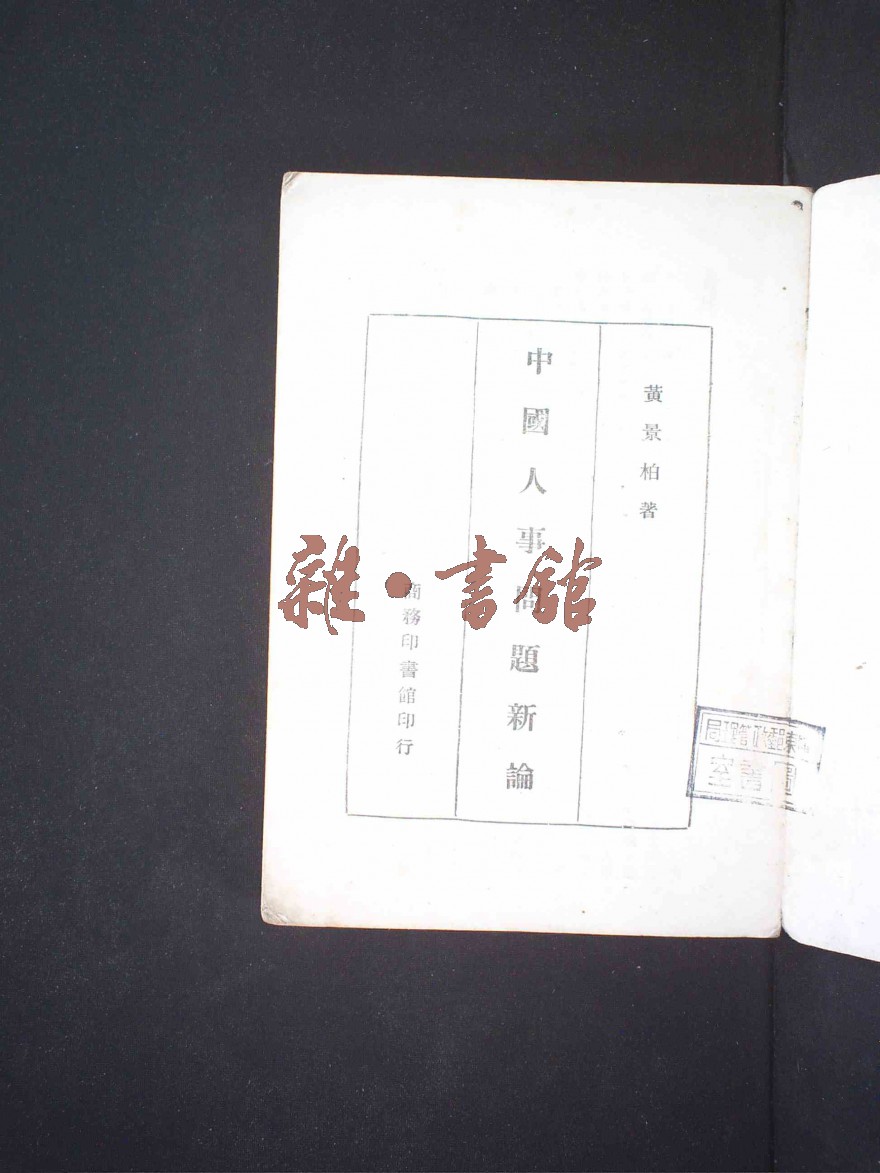 黃景柏著
中國人事問題新論
商務印書館印行
雜·書館
東郵政管理局
圖書室